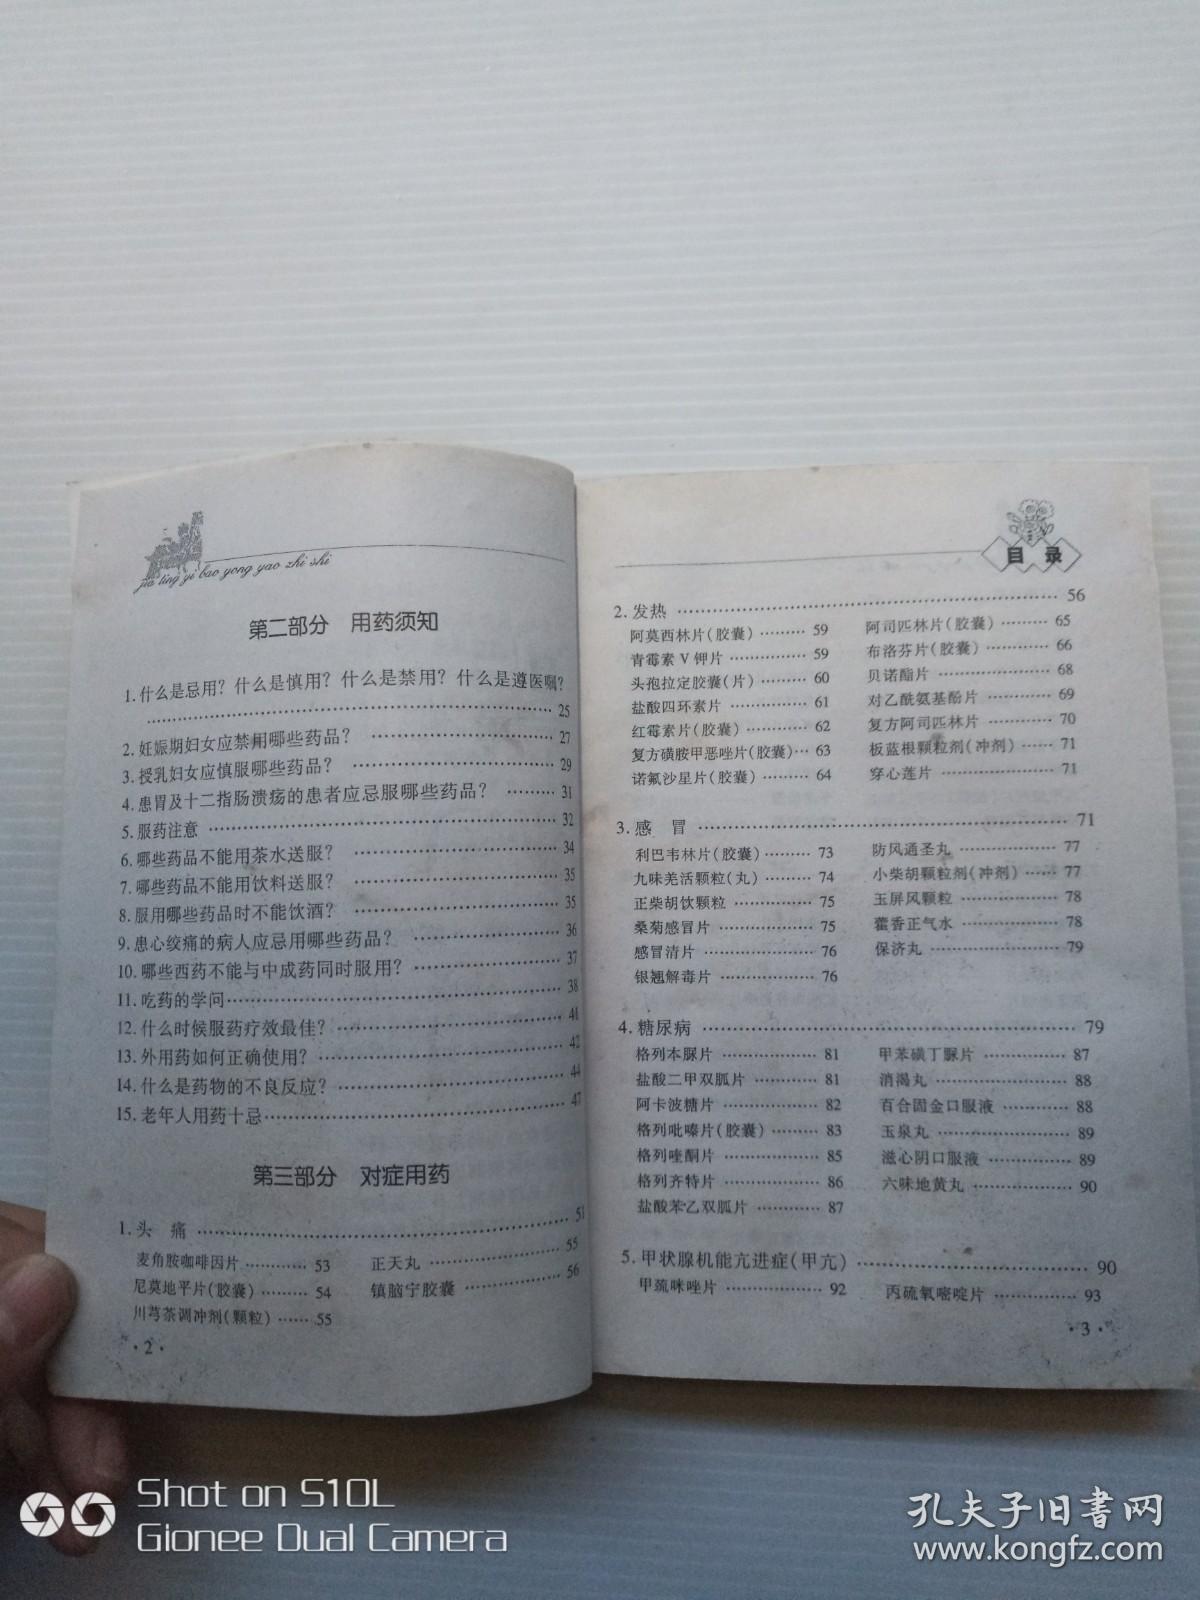 jia ting yi bao yong yao zhi shi
第二部分 用药须知
1.什么是忌用？什么是慎用？什么是禁用？什么是遵医嘱？
………………………………………… 25
2.妊娠期妇女应禁用哪些药品？ ………………… 27
3.授乳妇女应慎服哪些药品？ ………………… 29
4.患胃及十二指肠溃疡的患者应忌服哪些药品？ ……… 31
5.服药注意 ………………………………… 32
6.哪些药品不能用茶水送服？ ………………… 34
7.哪些药品不能用饮料送服？ ………………… 35
8.服用哪些药品时不能饮酒？ ………………… 35
9.患心绞痛的病人应忌用哪些药品？ …………… 36
10.哪些西药不能与中成药同时服用？ …………… 37
11.吃药的学问………………………………… 38
12.什么时候服药疗效最佳？ ………………… 41
13.外用药如何正确使用？ …………………… 42
14.什么是药物的不良反应？ ………………… 44
15.老年人用药十忌…………………………… 47
第三部分 对症用药
1.头 痛 ………………………………… 51
麦角胺咖啡因片………… 53
尼莫地平片(胶囊)……… 54
川芎茶调冲剂(颗粒) …… 55
正天丸 ……………… 55
镇脑宁胶囊 ………… 56
·2·
目录
2.发热 ………………………………… 56
阿莫西林片(胶囊) ……… 59
青霉素 V 钾片 ………… 59
头孢拉定胶囊(片) ……… 60
盐酸四环素片 ………… 61
红霉素片(胶囊) ……… 62
复方磺胺甲恶唑片(胶囊)… 63
诺氟沙星片(胶囊) ……… 64
阿司匹林片(胶囊) ……… 65
布洛芬片(胶囊) ……… 66
贝诺酯片 ……………… 68
对乙酰氨基酚片 ……… 69
复方阿司匹林片 ……… 70
板蓝根颗粒剂(冲剂) …… 71
穿心莲片 ……………… 71
3.感 冒 ………………………………… 71
利巴韦林片(胶囊) ……… 73
九味羌活颗粒(丸) ……… 74
正柴胡饮颗粒 ………… 75
桑菊感冒片 …………… 75
感冒清片 ……………… 76
银翘解毒片 …………… 76
防风通圣丸 …………… 77
小柴胡颗粒剂(冲剂) …… 77
玉屏风颗粒 …………… 78
藿香正气水 …………… 78
保济丸 ………………… 79
4.糖尿病 ………………………………… 79
格列本脲片 …………… 81
盐酸二甲双胍片 ……… 81
阿卡波糖片 …………… 82
格列吡嗪片(胶囊) ……… 83
格列喹酮片 …………… 85
格列齐特片 …………… 86
盐酸苯乙双胍片 ……… 87
甲苯磺丁脲片 ………… 87
消渴丸 ………………… 88
百合固金口服液 ……… 88
玉泉丸 ………………… 89
滋心阴口服液 ………… 89
六味地黄丸 …………… 90
5.甲状腺机能亢进症(甲亢) ……………… 90
甲巯咪唑片 …………… 92
丙硫氧嘧啶片 ………… 93
·3·
Shot on S10L
Gionee Dual Camera
孔夫子旧书网
www.kongfz.com